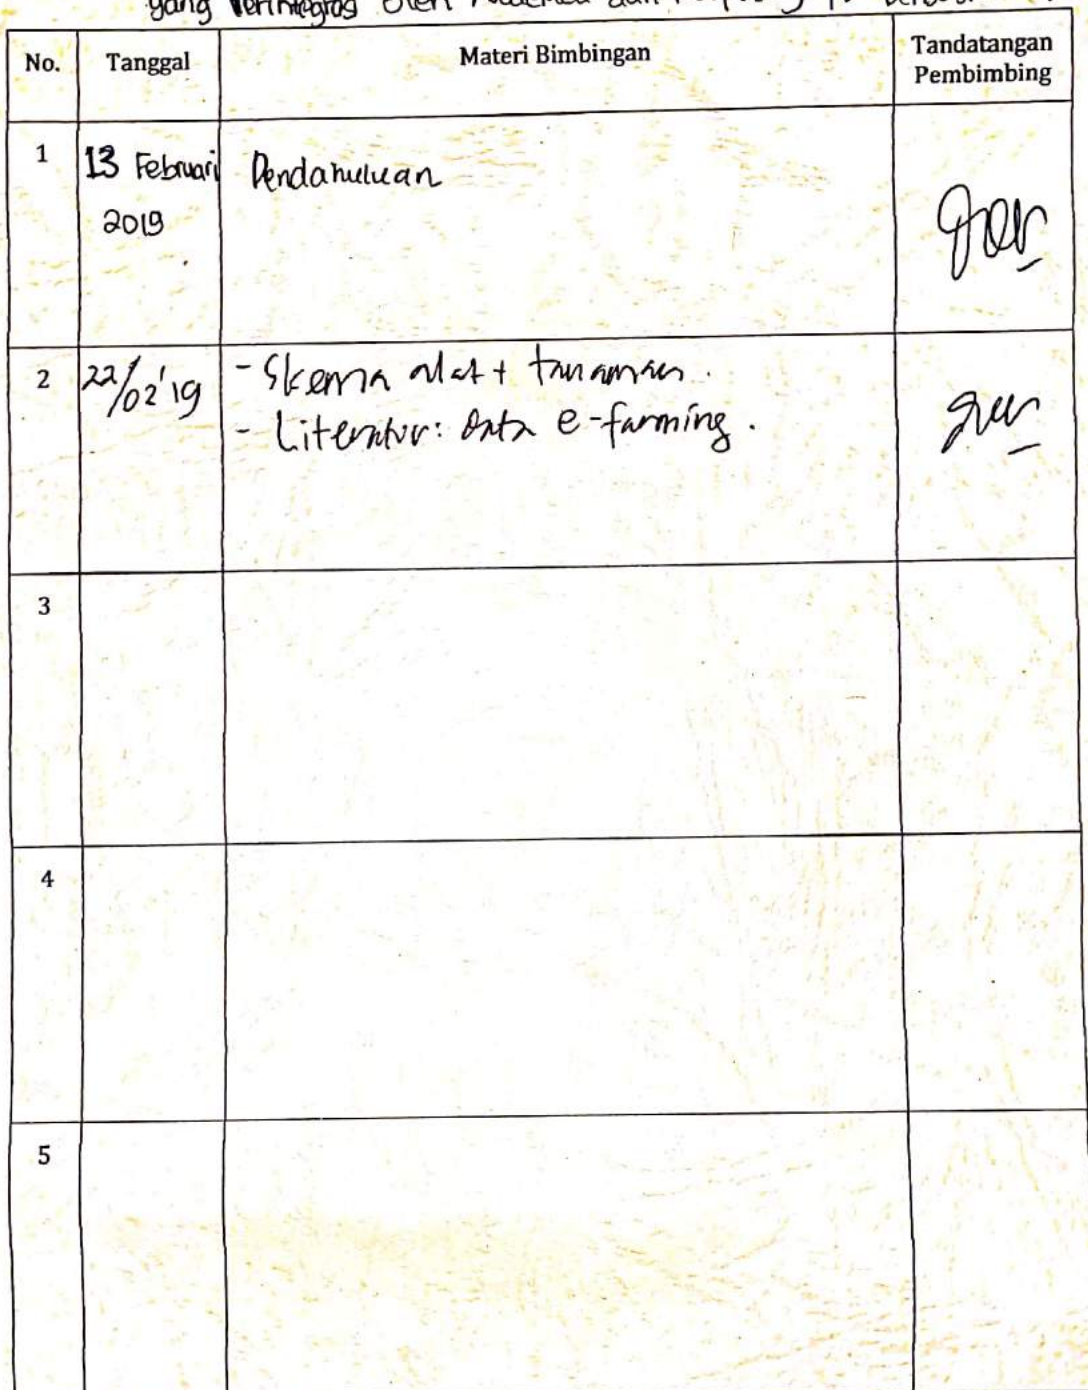 yang terintegrasi oleh dan
No. Tanggal Materi Bimbingan Tandatangan Pembimbing
1 13 Februari 2019 Pendahuluan
2 22/02'19 - Skema alat + tanaman.
- Literatur: Data e-farming.
3
4
5